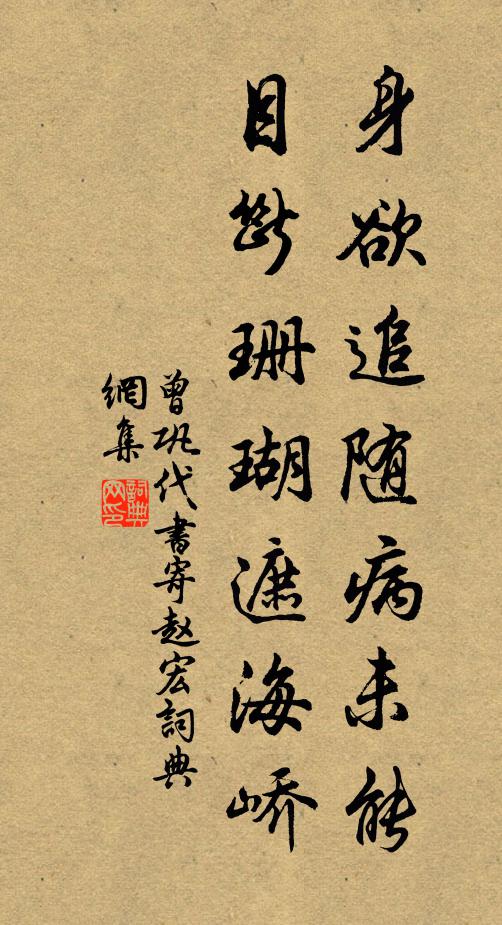 身欲追随病未能
目断珊瑚遮海峤
曾巩代書寄赵宏詞典
網集
詞典网印